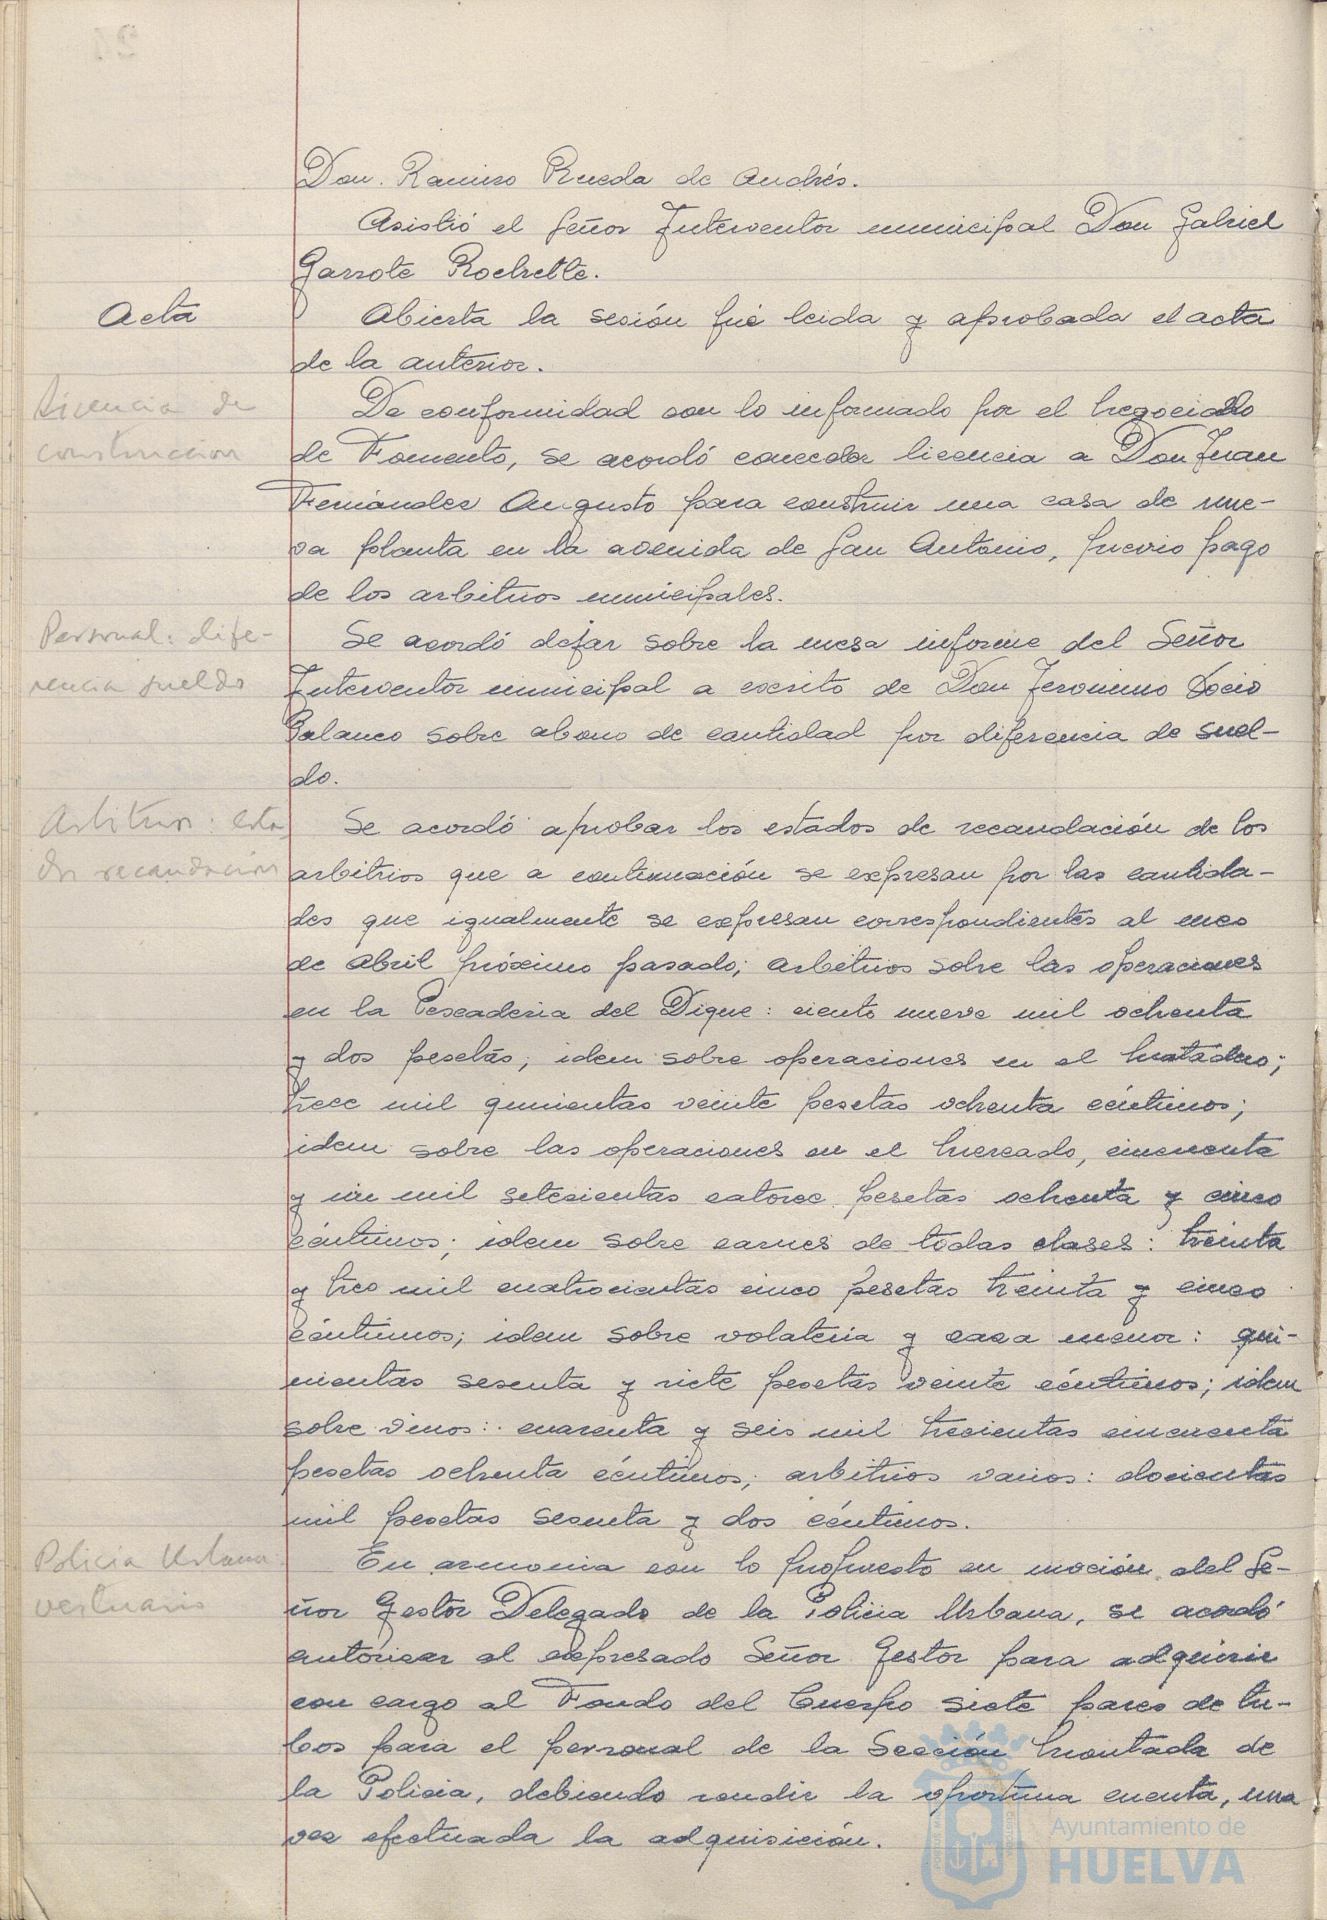 Don. Ramiro Rueda de Andrés.
Asistió el Señor Interventor municipal Don Gabriel
Garrote Rochette.
Acta
Abierta la sesión fué leida y aprobada el acta
de la anterior.
Licencia de
construccion
De conformidad con lo informado por el Negociado
de Fomento, se acordó conceder licencia a Don Juan
Fernández Augusto para construir una casa de nue-
va planta en la avenida de San Antonio, previo pago
de los arbitrios municipales.
Personal: dife-
rencia sueldo
Se acordó dejar sobre la mesa informe del Señor
Interventor municipal a escrito de Don Jeronimo Socio
Polanco sobre abono de cantidad por diferencia de suel-
do.
Arbitrios: esta
dos recaudación
Se acordó aprobar los estados de recaudación de los
arbitrios que a continuación se expresan por las cantida-
des que igualmente se expresan correspondientes al mes
de Abril próximo pasado; arbitrios sobre las operaciones
en la Pescaderia del Dique: ciento nueve mil ochenta
y dos pesetas; idem sobre operaciones en el Matadero;
trece mil quinientas veinte pesetas ochenta céntimos;
idem sobre las operaciones en el Mercado, cincuenta
y un mil setecientas catorce pesetas ochenta y cinco
céntimos; idem sobre carnes de todas clases: treinta
y tres mil cuatrocientas cinco pesetas treinta y cinco
céntimos; idem sobre volateria y caza menor: qui-
nientas sesenta y siete pesetas veinte céntimos; idem
sobre vinos: cuarenta y seis mil trecientas cincuenta
pesetas ochenta céntimos; arbitrios varios: docientas
mil pesetas sesenta y dos céntimos.
Policia Urbana
vestuario
En armonia con lo propuesto en moción del Se-
ñor Gestor Delegado de la Policia Urbana, se acordó
autorizar al expresado Señor Gestor para adquirir
con cargo al Fondo del Cuerpo siete pares de tu-
bos para el personal de la Sección Montada de
la Policia, debiendo rendir la oportuna cuenta, una
vez efectuada la adquisición.
Ayuntamiento de
HUELVA